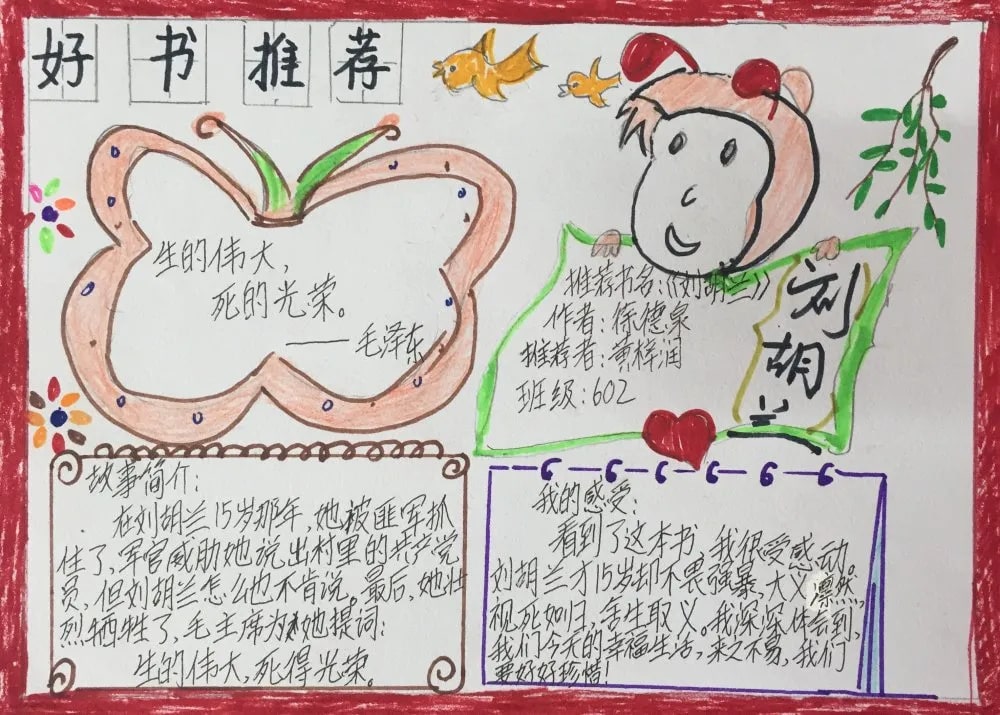 好书推荐
生的伟大,
死的光荣。
——毛泽东
推荐书名:《刘胡兰》
作者:徐德泉
推荐者:黄梓润
班级:602
刘胡兰
故事简介:
在刘胡兰15岁那年,她被匪军抓
住了,军官威助她说出村里的共产党
员,但刘胡兰怎么也不肯说。最后,她壮
烈牺牲了,毛主席为她提词:
生的伟大,死得光荣。
我的感受:
看到了这本书,我很受感动。
刘胡兰才15岁却不畏强暴,大义凛然,
视死如归,舍生取义。我深深体会到,
我们今天的幸福生活,来之不易,我们
要好好珍惜!